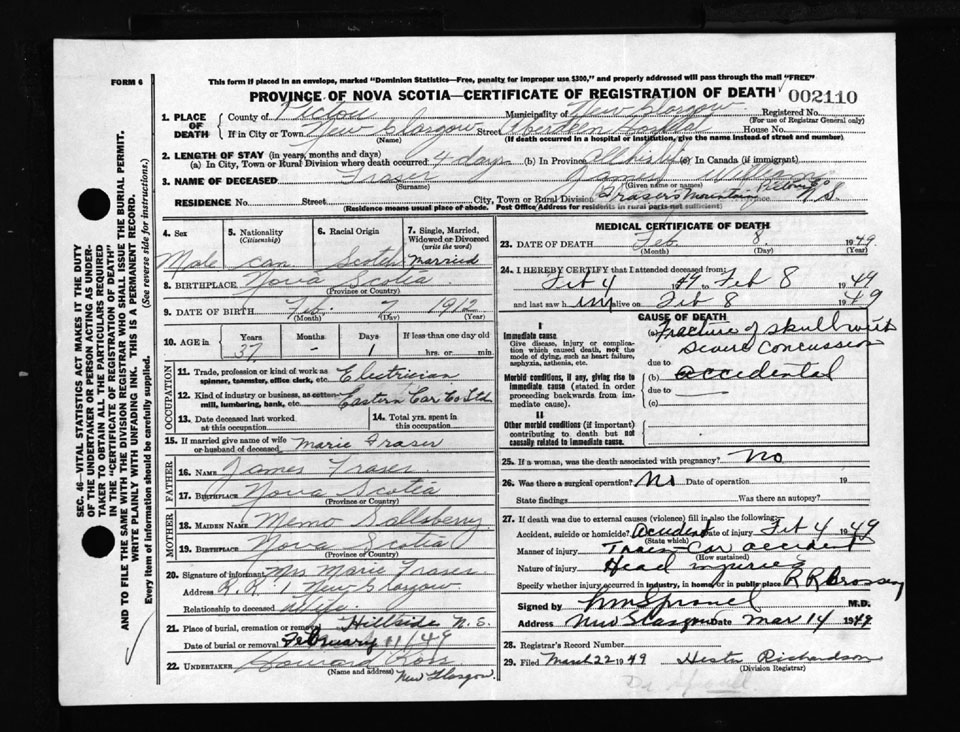 FORM 6
This form if placed in an envelope, marked "Dominion Statistics—Free, penalty for improper use $300," and properly addressed will pass through the mail "FREE"
PROVINCE OF NOVA SCOTIA—CERTIFICATE OF REGISTRATION OF DEATH
002110
1. PLACE OF DEATH
County of Pictou Municipality of New Glasgow Registered No.
(For use of Registrar General only)
If in City or Town New Glasgow Street House No.
(Name) (If death occurred in a hospital or institution, give the name instead of street and number)
2. LENGTH OF STAY (in years, months and days)
(a) In City, Town or Rural Division where death occurred 4 days (b) In Province (c) In Canada (if immigrant)
3. NAME OF DECEASED Fraser James William
(Surname) (Given name or names)
RESIDENCE No. Street City, Town or Rural Division Fraser's Mountain Pictou Co N.S.
(Residence means usual place of abode. Post Office Address for residents in rural parts not sufficient)
4. Sex
5. Nationality
(Citizenship)
6. Racial Origin
7. Single, Married, Widowed or Divorced
(write the word)
Male Can Scotch Married
8. BIRTHPLACE Nova Scotia
(Province or Country)
9. DATE OF BIRTH Feb. 7 1912
(Month) (Day) (Year)
10. AGE in
Years Months Days If less than one day old
37 - 1 hrs. or min.
OCCUPATION
11. Trade, profession or kind of work as spinner, teamster, office clerk, etc. Electrician
12. Kind of industry or business, as cotton mill, lumbering, bank, etc. Eastern Car Co Ltd
13. Date deceased last worked at this occupation
14. Total yrs. spent in this occupation
15. If married give name of wife or husband of deceased Marie Fraser
FATHER
16. NAME James Fraser
17. BIRTHPLACE Nova Scotia
(Province or Country)
MOTHER
18. MAIDEN NAME Memo Sallsberry
19. BIRTHPLACE Nova Scotia
(Province or Country)
20. Signature of informant Mrs Marie Fraser
Address R.R. 1 New Glasgow
Relationship to deceased Wife.
21. Place of burial, cremation or removal Hillside N.S.
Date of burial or removal February 11/49
22. UNDERTAKER Ross
(Name and address) New Glasgow.
MEDICAL CERTIFICATE OF DEATH
23. DATE OF DEATH Feb. 8. 1949
(Month) (Day) (Year)
24. I HEREBY CERTIFY that I attended deceased from:
Feb 4 1949 to Feb 8 1949
and last saw him alive on Feb 8 1949
CAUSE OF DEATH
I
Immediate cause
Give disease, injury or complication which caused death, not the mode of dying, such as heart failure, asphyxia, asthenia, etc.
(a) Fracture of skull with severe concussion
due to
Morbid conditions, if any, giving rise to immediate cause (stated in order proceeding backwards from immediate cause).
(b) accidental
due to
(c)
II
Other morbid conditions (if important) contributing to death but not causally related to immediate cause.
25. If a woman, was the death associated with pregnancy? No
26. Was there a surgical operation? No Date of operation 19
State findings Was there an autopsy?
27. If death was due to external causes (violence) fill in also the following:
Accident, suicide or homicide? Accident Date of injury Feb 4 1949
(State which)
Manner of injury Train-Car accident
(How sustained)
Nature of injury Head injuries
Specify whether injury occurred in industry, in home, or in public place R R Crossing
Signed by M.D.
Address New Glasgow Date Mar 14 1949
28. Registrar's Record Number
29. Filed March 22 1949 Hester Richardson
(Division Registrar)
SEC. 46—VITAL STATISTICS ACT MAKES IT THE DUTY OF THE UNDERTAKER OR PERSON ACTING AS UNDERTAKER TO OBTAIN ALL THE PARTICULARS REQUIRED IN THE "CERTIFICATE OF REGISTRATION OF DEATH" AND TO FILE THE SAME WITH THE DIVISION REGISTRAR WHO SHALL ISSUE THE BURIAL PERMIT.
WRITE PLAINLY WITH UNFADING INK. THIS IS A PERMANENT RECORD.
Every item of information should be carefully supplied. (See reverse side for instructions.)